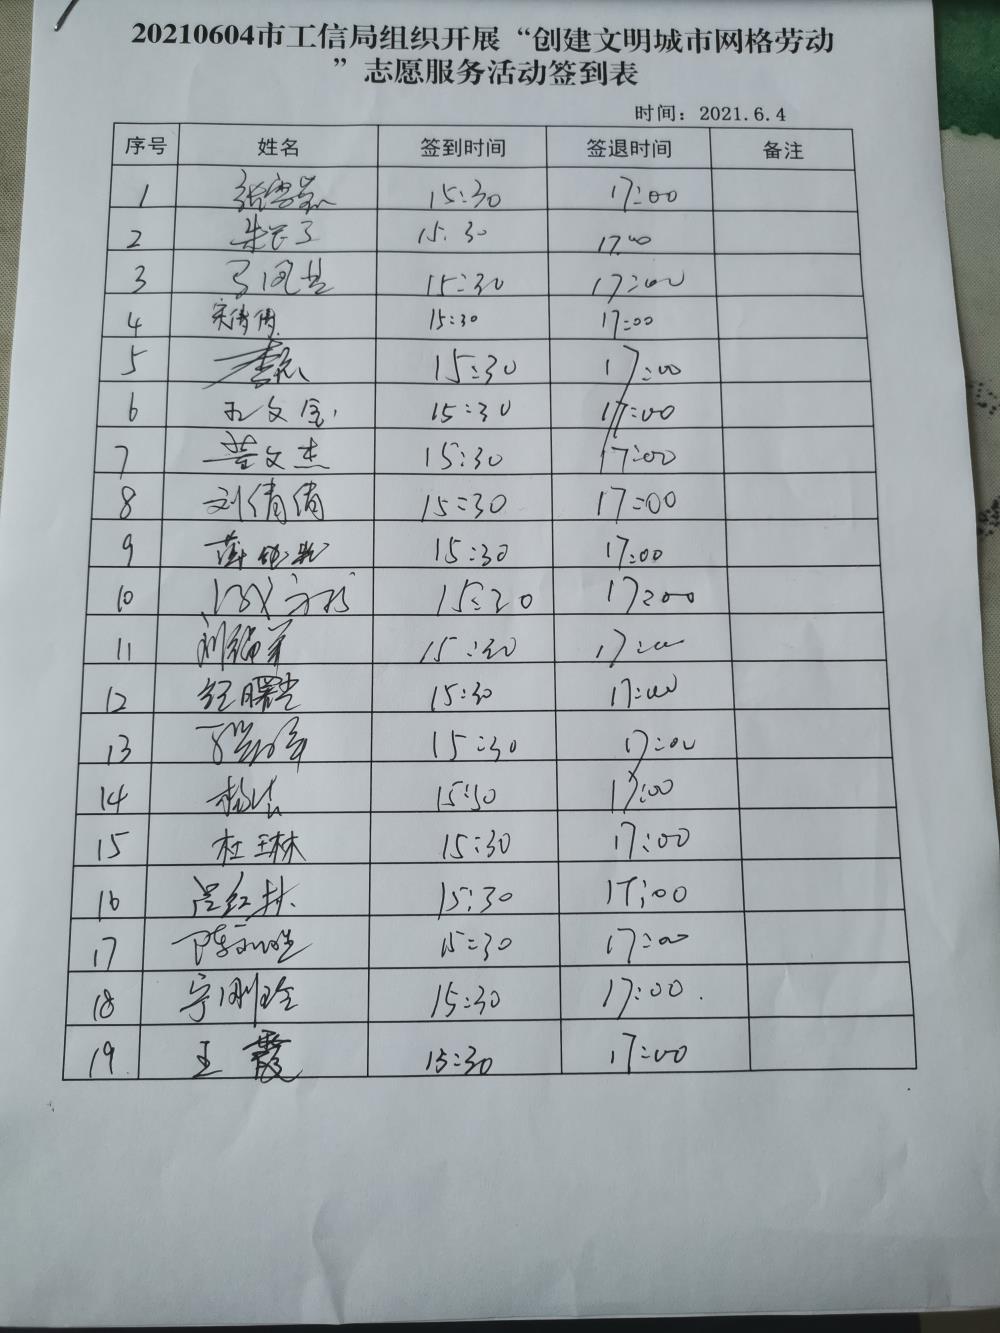 20210604市工信局组织开展“创建文明城市网格劳动
”志愿服务活动签到表
时间：2021.6.4
序号 姓名 签到时间 签退时间 备注
1 15:30 17:00
2 15:30 17:00
3 15:30 17:00
4 宋倩倩 15:30 17:00
5 15:30 17:00
6 孔文宝 15:30 17:00
7 黄文杰 15:30 17:00
8 刘倩倩 15:30 17:00
9 15:30 17:00
10 15:30 17:00
11 15:30 17:00
12 纪曙光 15:30 17:00
13 15:30 17:00
14 杨洁 15:30 17:00
15 杜玉林 15:30 17:00
16 吕红林 15:30 17:00
17 15:30 17:00
18 宁刚玲 15:30 17:00
19 王霞 15:30 17:00